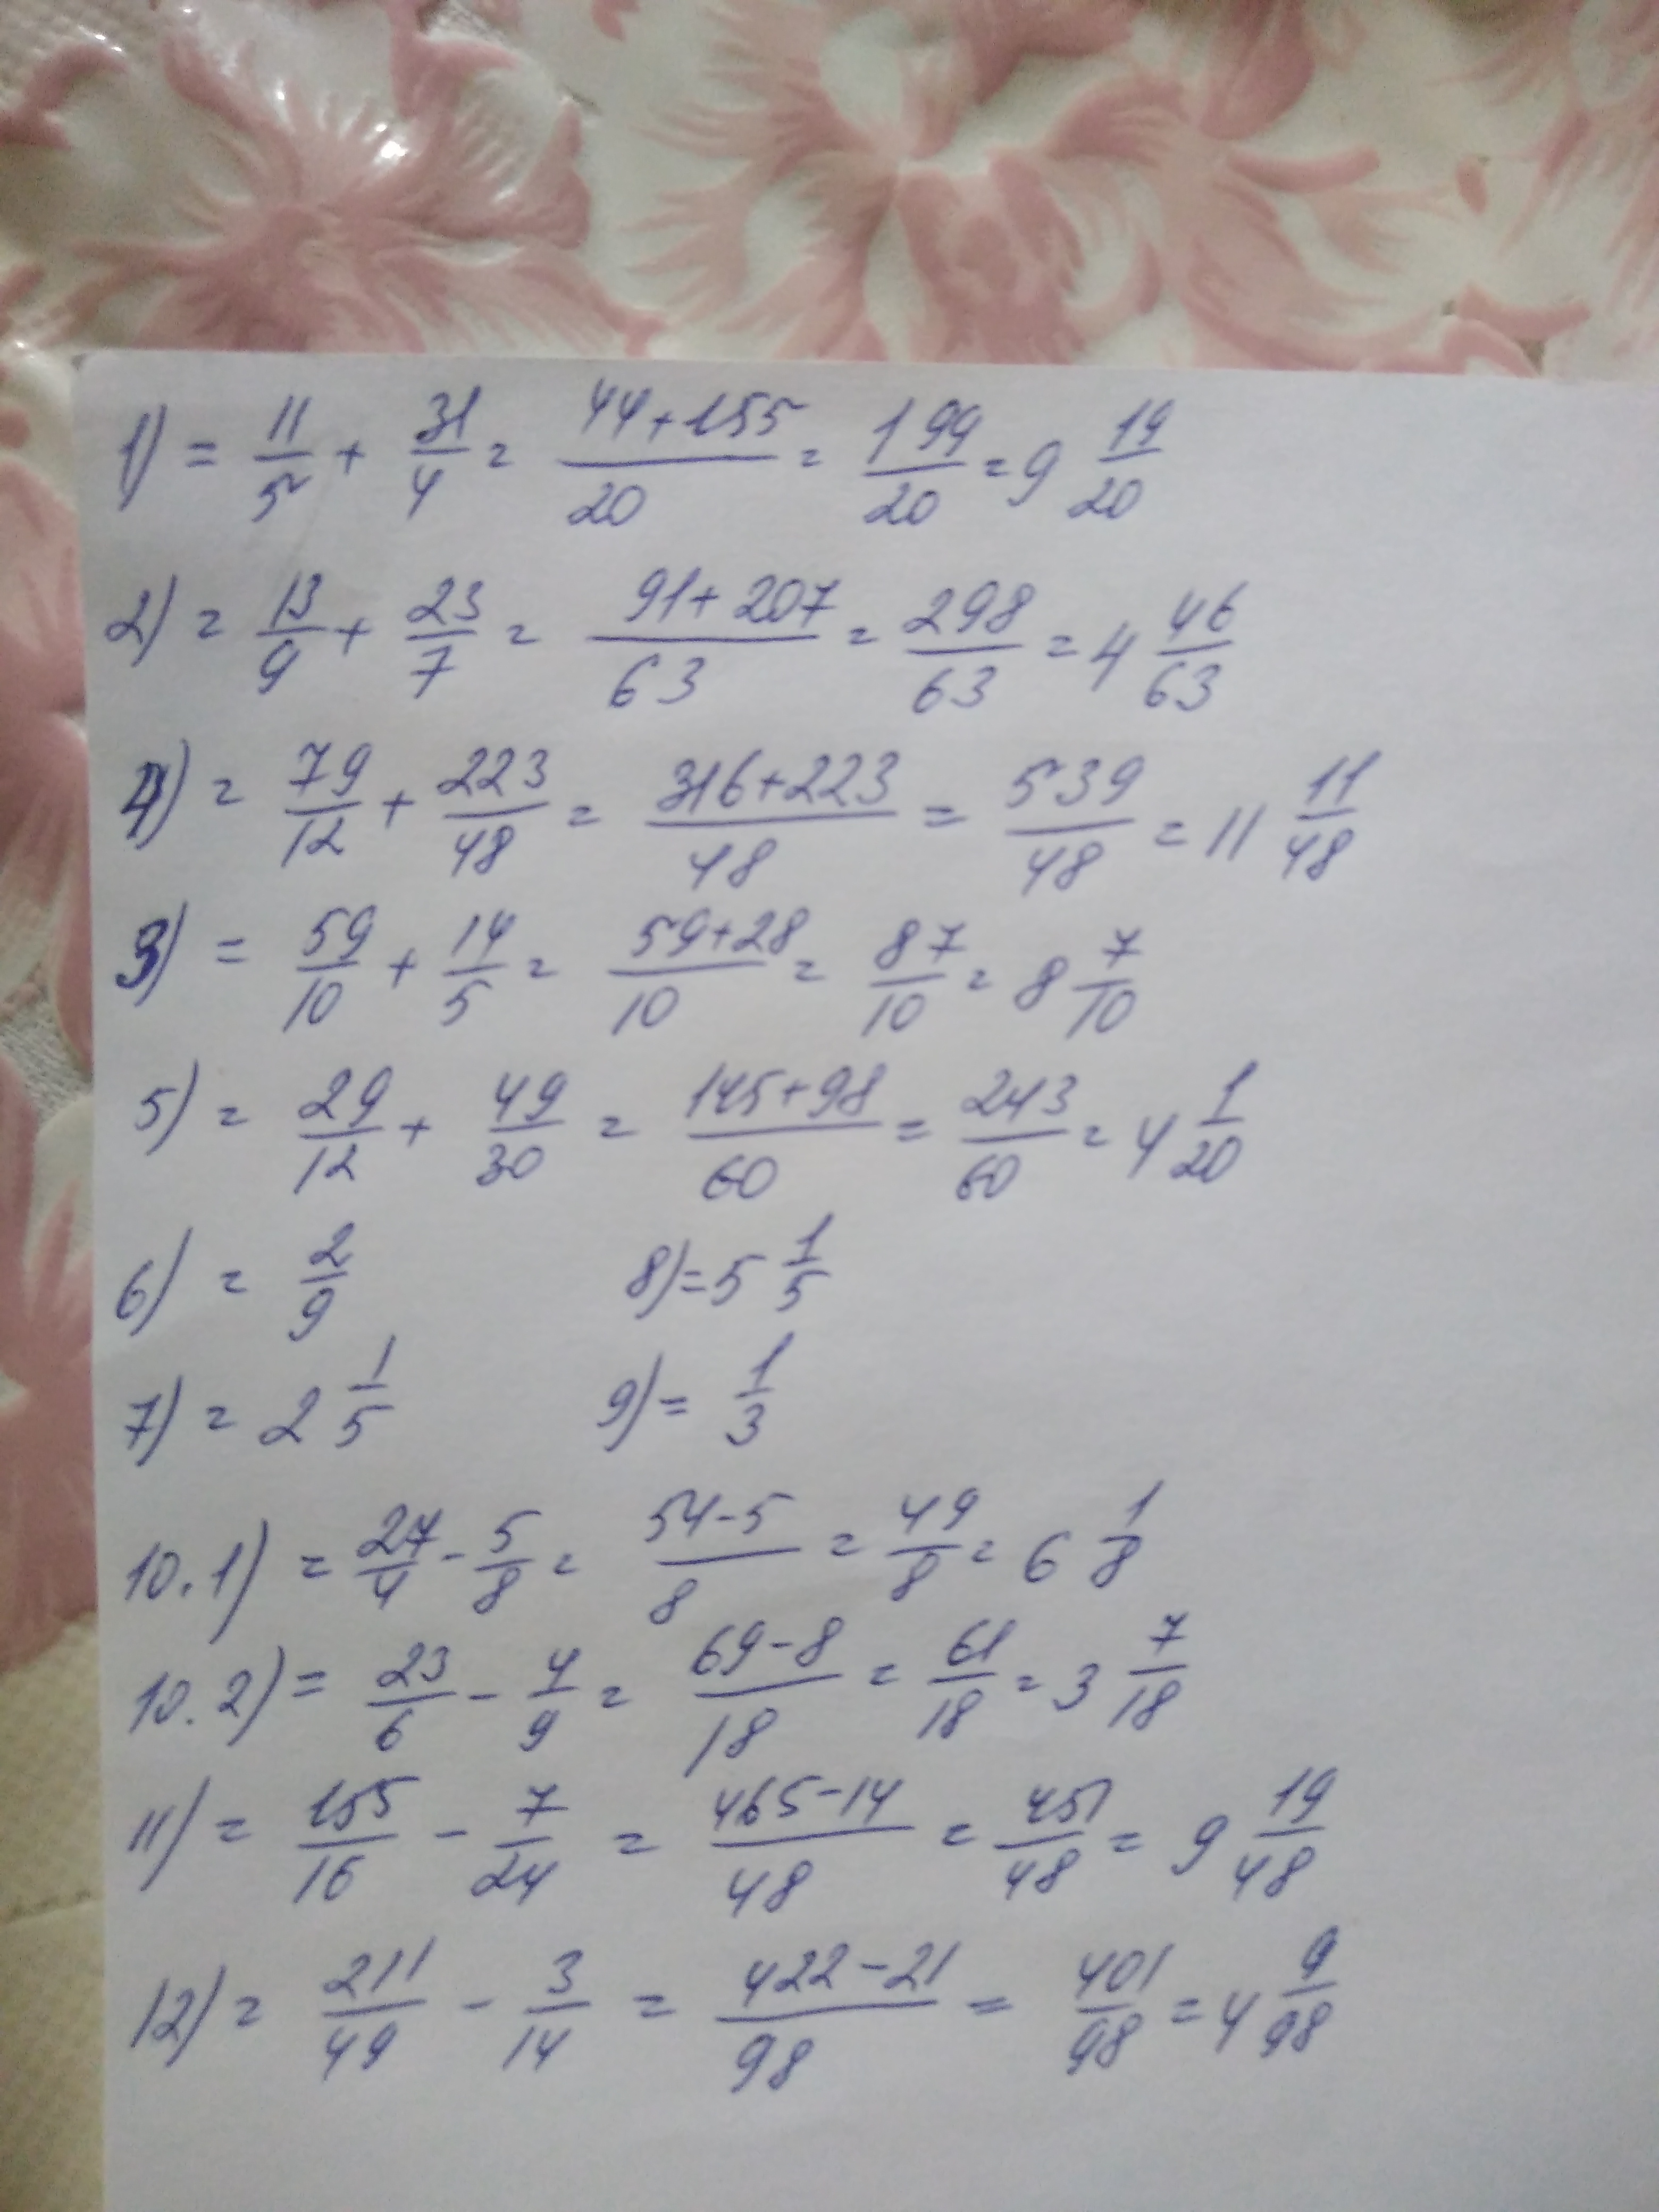 1) = 11/5 + 31/4 = (44+155)/20 = 199/20 = 9 19/20
2) = 13/9 + 23/7 = (91+207)/63 = 298/63 = 4 46/63
4) = 79/12 + 223/48 = (316+223)/48 = 539/48 = 11 11/48
3) = 59/10 + 14/5 = (59+28)/10 = 87/10 = 8 7/10
5) = 29/12 + 49/30 = (145+98)/60 = 243/60 = 4 1/20
6) = 2/9 8) = 5 1/5
7) = 2 1/5 9) = 1/3
10.1) = 27/4 - 5/8 = (54-5)/8 = 49/8 = 6 1/8
10.2) = 23/6 - 4/9 = (69-8)/18 = 61/18 = 3 7/18
11) = 155/16 - 7/24 = (465-14)/48 = 451/48 = 9 19/48
12) = 211/49 - 3/14 = (422-21)/98 = 401/98 = 4 9/98